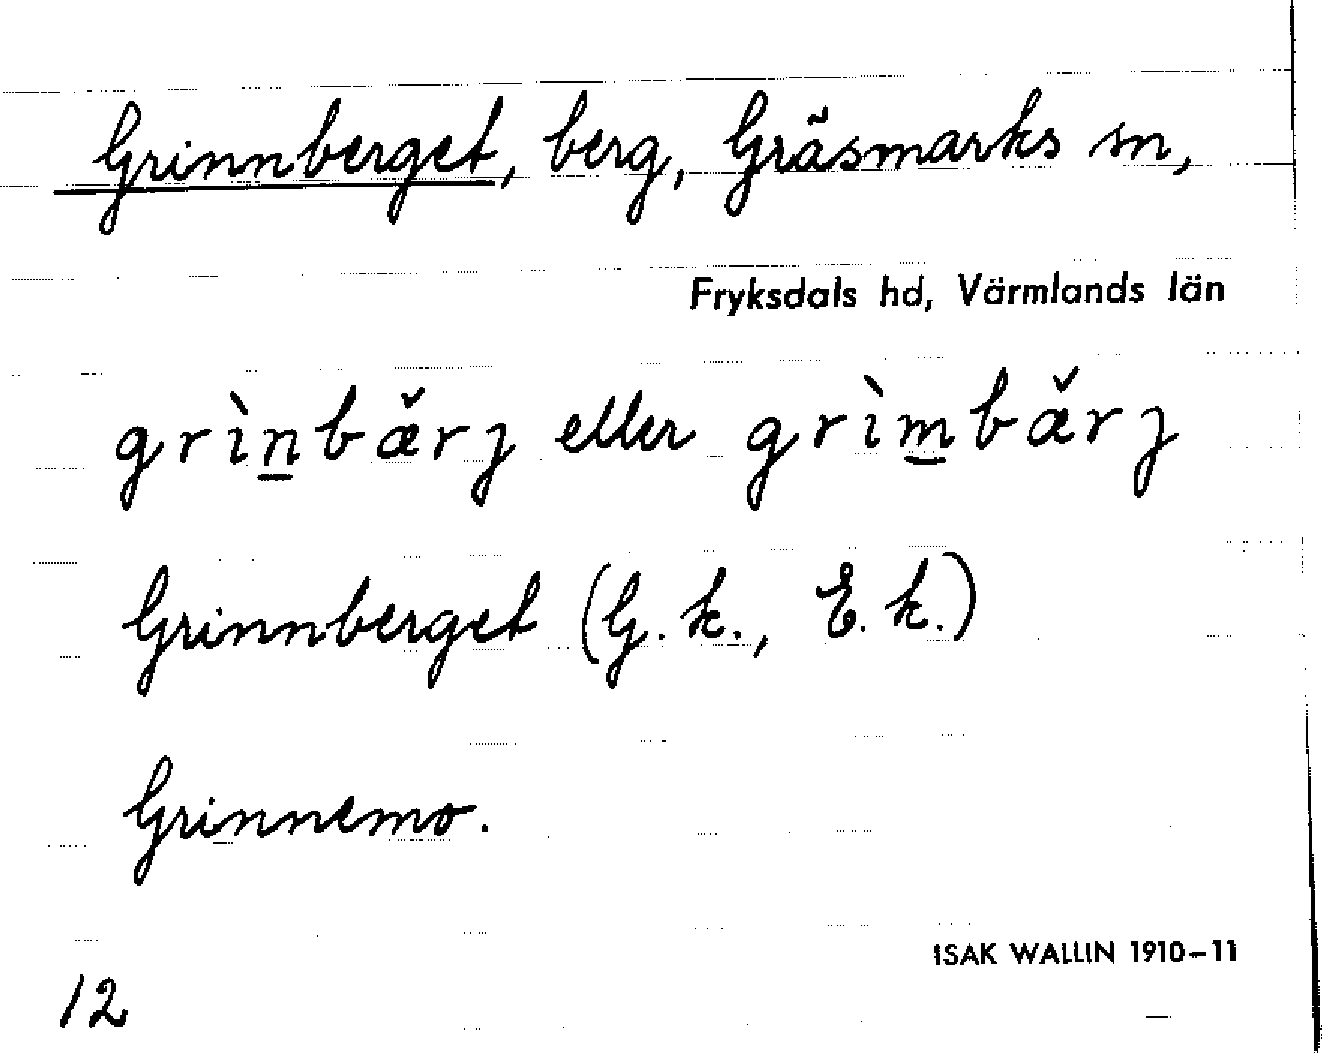 Grinnberget, berg, Gräsmarks sn,
Fryksdals hd, Värmlands län
grìn̲bæ̌rȷ eller grìm̲bæ̌rȷ
Grinnberget (G.k., E.k.)
Grinnemo.
ISAK WALLIN 1910–11
12